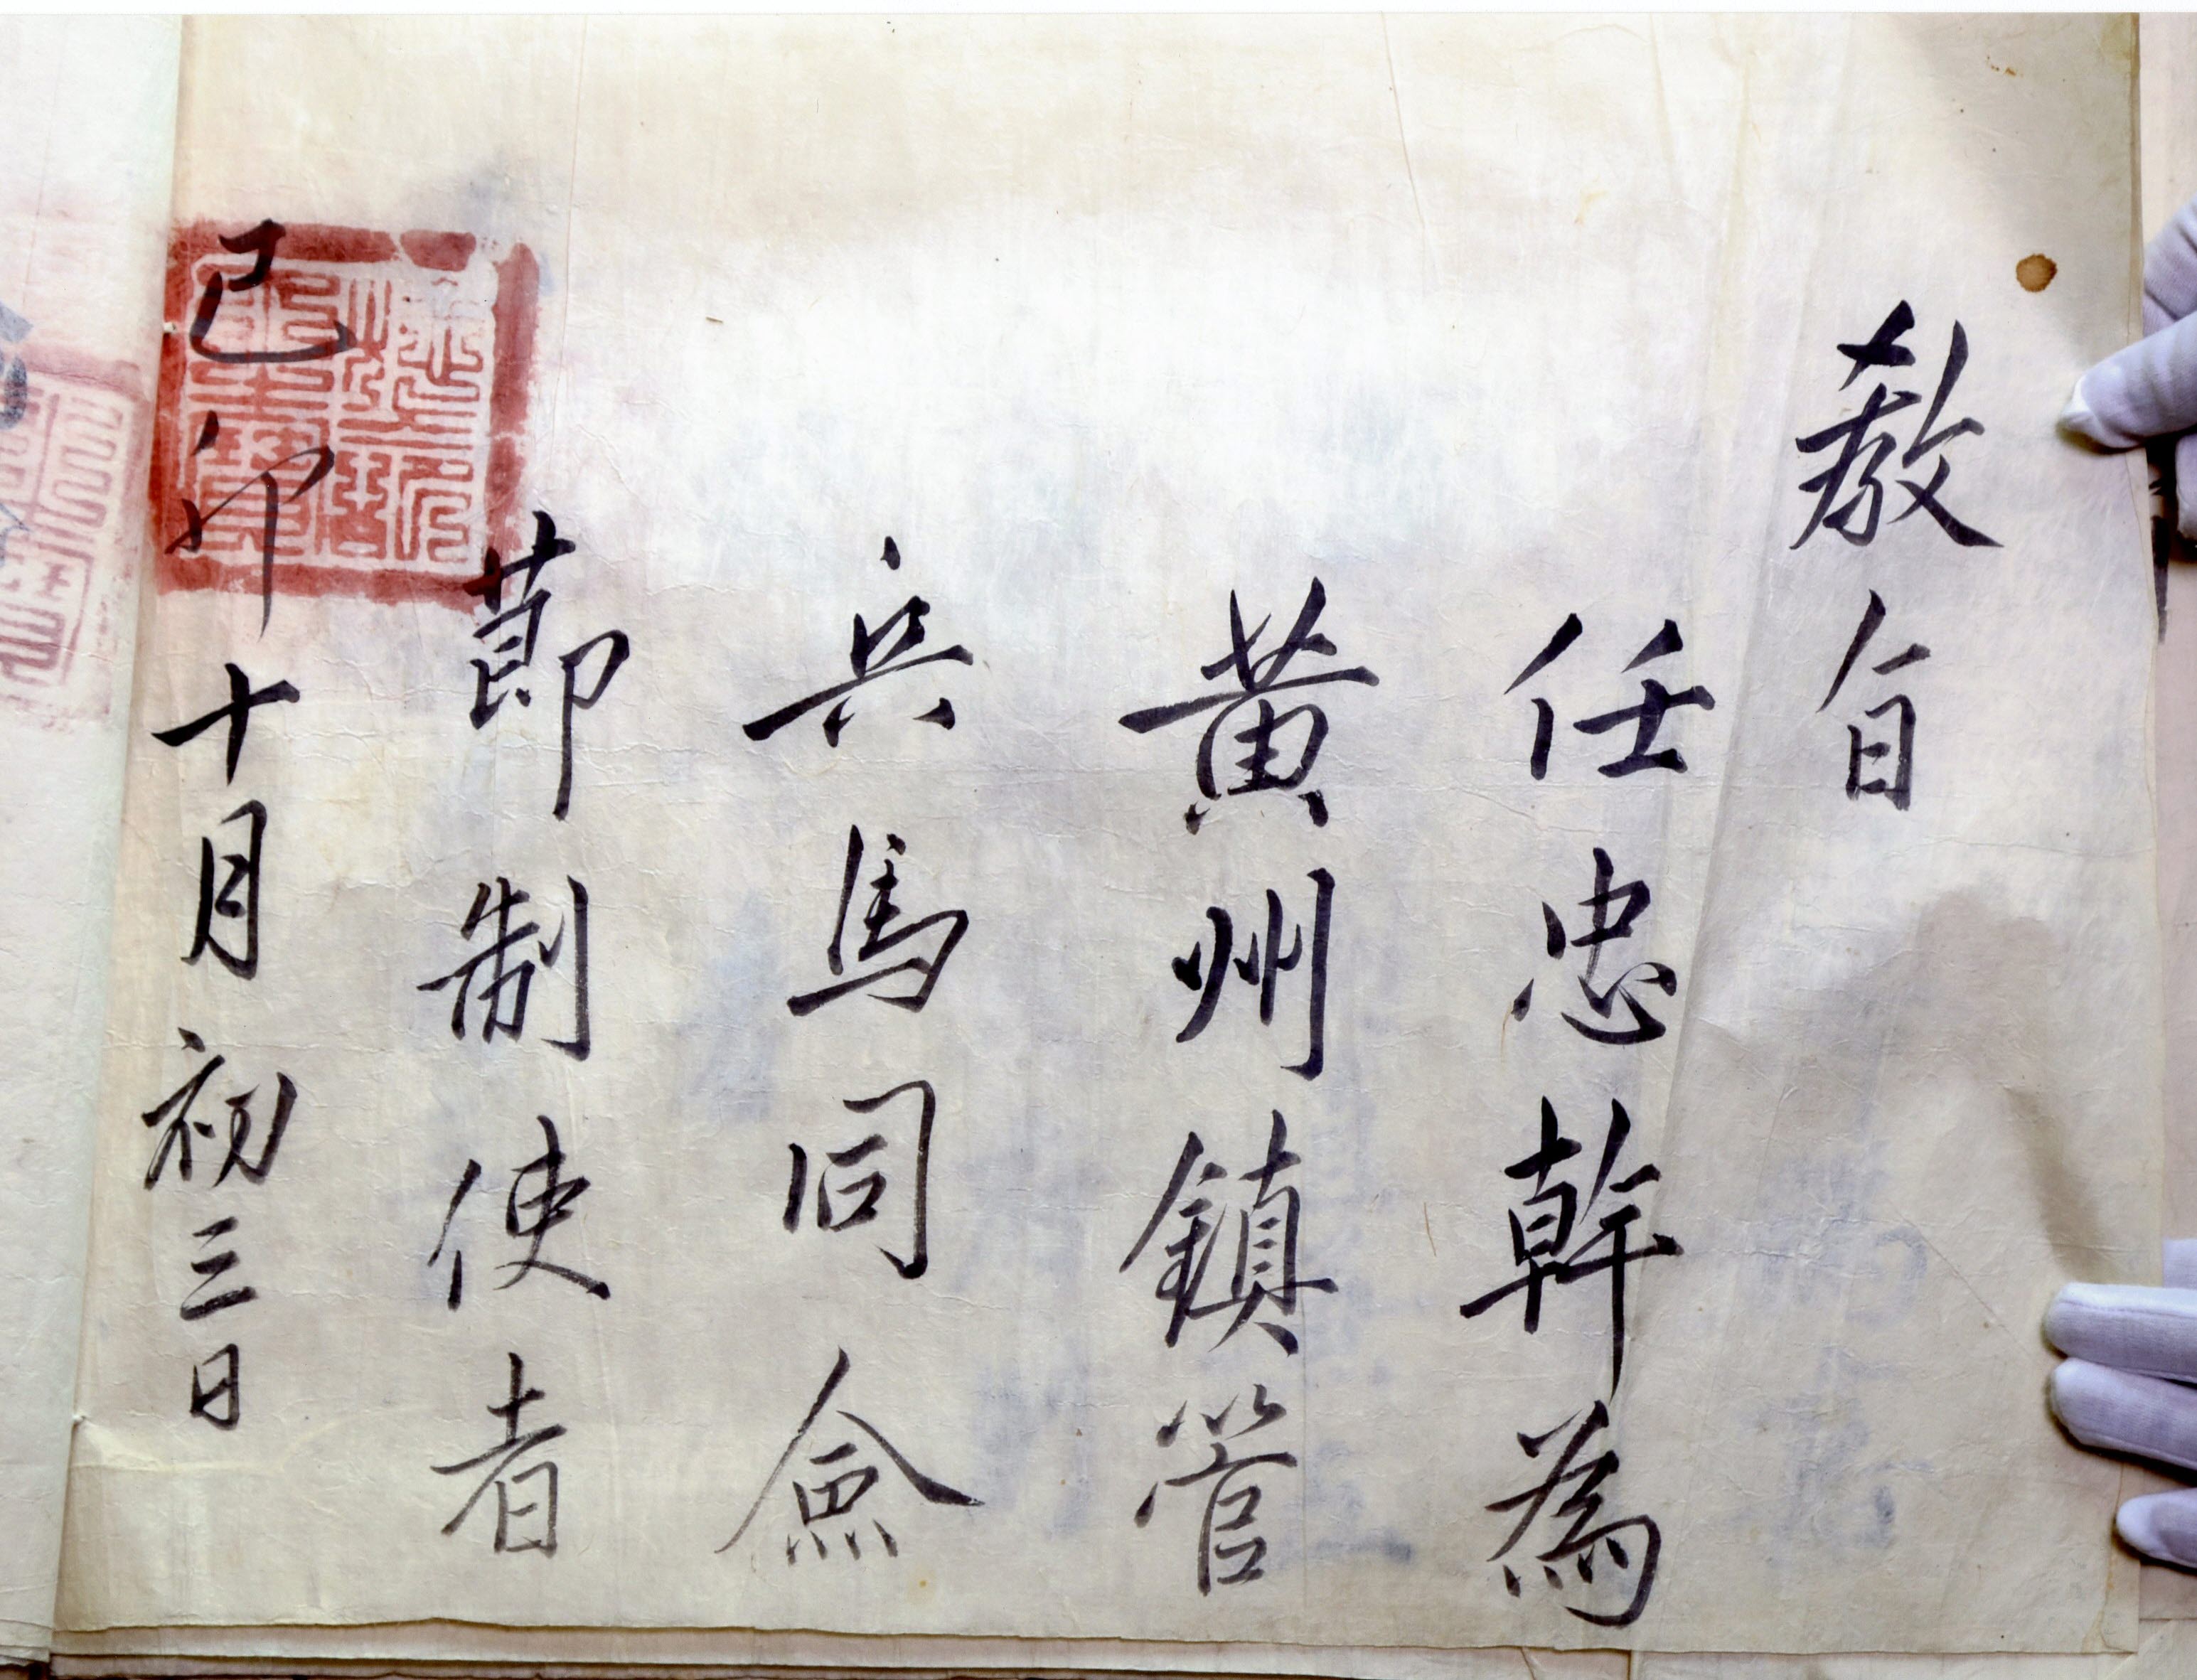 教旨
任忠幹為
黃州鎮管
兵馬同僉
節制使者
己卯十月初三日